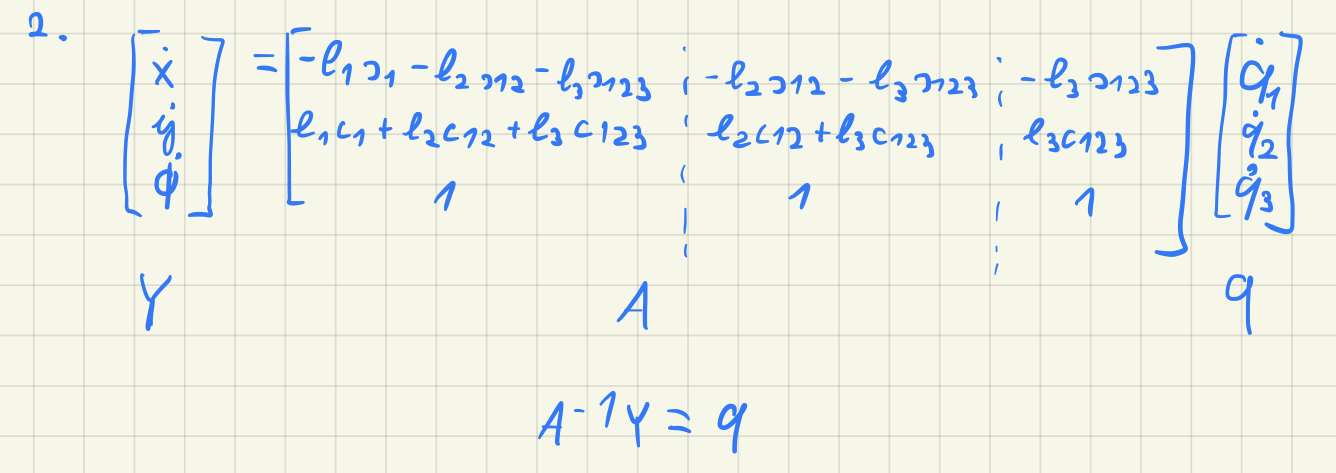 2.
[ẋ ẏ ϕ̇] = [-l₁s₁ - l₂s₁₂ - l₃s₁₂₃ ¦ -l₂s₁₂ - l₃s₁₂₃ ¦ -l₃s₁₂₃ ; l₁c₁ + l₂c₁₂ + l₃c₁₂₃ ¦ l₂c₁₂ + l₃c₁₂₃ ¦ l₃c₁₂₃ ; 1 ¦ 1 ¦ 1] [q̇₁ q̇₂ q̇₃]
Y A q
A⁻¹Y = q